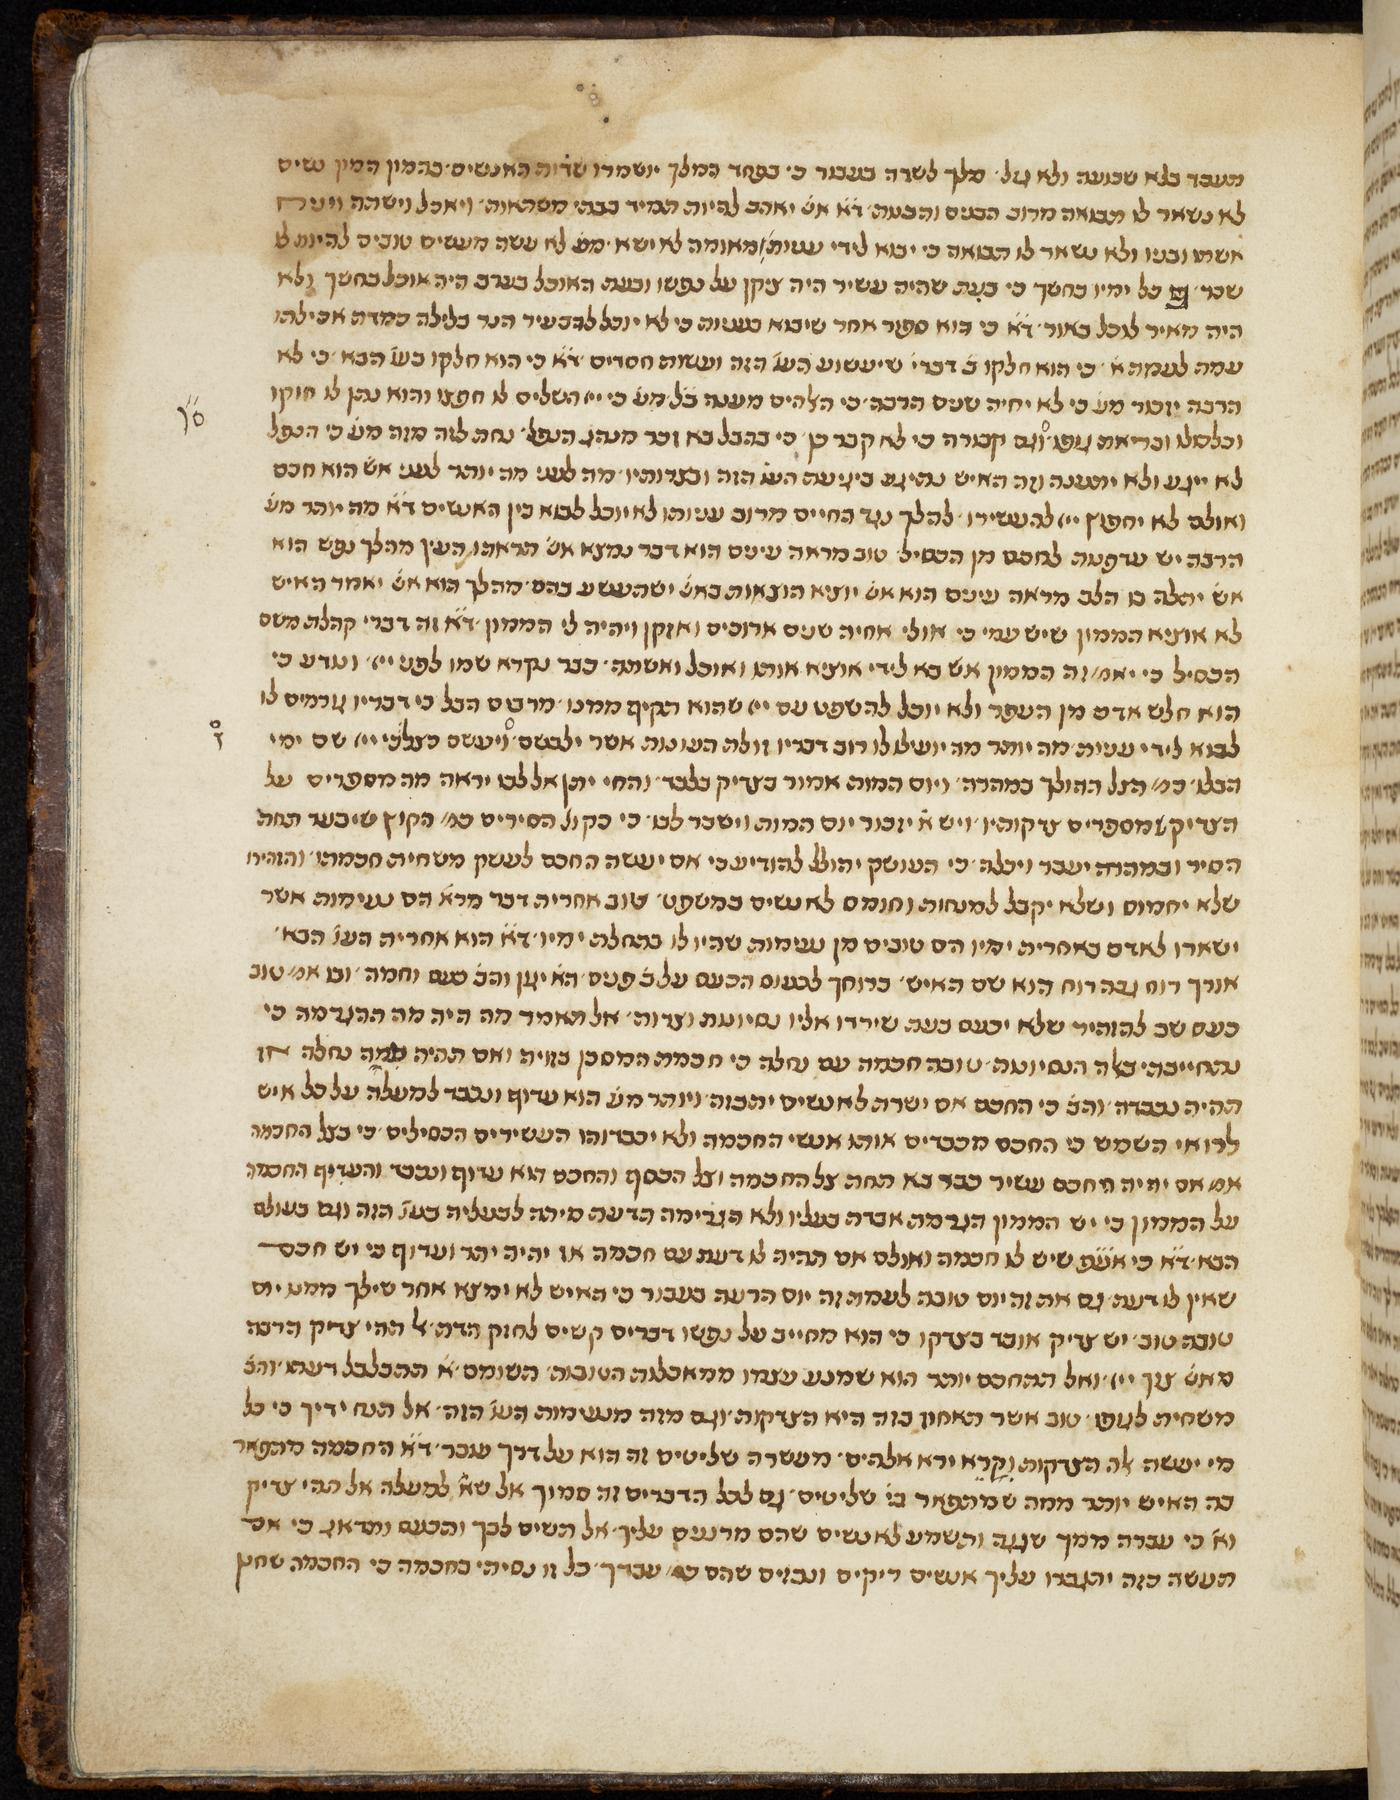 תעבד בלא שבועה ולא גזל׳ מלך לשדה בעבור כי בפחד המלך ישמרו שדות האנשים׳ בהמון המון נשים
לא נשאר לו תבואה מרוב הבנים והבנות׳ ד״א אש׳ יאהב להיות תמיד בבתי משתאות׳ ויאכל וישתה
אשתו ובניו ולא נשאר לו תבואה כי יבוא לידי עניות׳ מאומה לא ישא׳ מע׳ לא עשה מעשים טובים להיות לו
שכר׳ גם כל ימיו בחשך כי בעת שהיה עשיר היה ציקן על נפשו ובעת האוכל בערב היה אוכל בחשך ולא
היה מאיר לאכל באור׳ ד״א כי בוא ספור אחר שיבוא בעניות כי לא יוכל להבעיר הנר בלילה כמדת אכילתו
עמה לעמת׳ כי הוא חלקו ב׳ דברי׳ שיעשוע הע׳ הזה ועשות חסדים ד״א כי הוא חלקו בע׳ הבא׳ כי לא
הרבה יזכור מע׳ כי לא יחיה שנים הרבה׳ כי האלהים מענה בל׳ מע׳ כי ייי השלים לו חפצו והוא נתן לו חוקו
וכלכולו ובריאת גופו׳ וגם קבורה כי לא קבר כן׳ כי בהבל בא זכר מנהג הנפל׳ נחת לזה מזה מע׳ כי הנפל
לא ייגע ולא יתענה וזה האיש נתיגע ביגיעת הע׳ הזה ובצרותיו׳ מה לעני מה יותר לעני אש׳ הוא חכם
ואולם לא יחפוץ ייי להעשירו׳ להלך נגד החיים מרוב עניותו לא יוכל לבוא בין האנשים ד״א מה יותר מע׳
הרבה יש עדפות לחכם מן הכסיל׳ טוב מראה עינים הוא דבר נמצא אש׳ תראהו העין מהלך נפש הוא
אש׳ יתלה בו הלב מראה עינים הוא אש׳ יוציא הוצאות באש׳ ישתעשע בהם׳ מהלך הוא אש׳ יאמר האיש
לא אוציא הממון שיש עמי כי אולי אחיה שנים ארוכים ואזקן ויהיה לי הממון׳ ד״א זה דברי קהלת משם
הכסיל כי יאמ׳ זה הממון אש׳ בא לידי אוציא אותו ואוכל ואשתה׳ כבר נקרא שמו לפני ייי׳ ונודע כי
הוא חלש אדם מן העפר ולא יוכל להשפט עם ייי שהוא תקיף ממנו׳ מרבים הבל כי דבריו גורמים לו
לבוא לידי עניות׳ מה יותר מה יועילו לו רוב דבריו זולת העונות אשר ילבשם׳ ויעשם כצל כי ייי שם ימי
הבלו׳ כמ׳ הצל ההולך במהרה׳ ויום המות אמור בצדיק בלבד׳ והחי יתן אל לבו יראה מה מספרים על
הצדיק ומספרים צדקותיו׳ ויש א׳ יזכור יום המות וישבר לבו׳ כי כקול הסירים כמ׳ הקוץ שיבער תחת
הסיר ובמהרה יעבר ויכלה׳ כי העושק יהולל להודיע כי אם יעשה החכם לעשק משחית חכמתו׳ והזהירו
שלא יחמוס ושלא יקבל למנחות וחונמס לאנשים במשפט׳ טוב אחרית דבר מרא׳ הם נעימות אשר
ישארו לאדם באחרית ימיו הם טובים מן נעימות שהיו לו בתחלת ימיו׳ ד״א הוא אחרית הע׳ הבא׳
אורך רוח גבה רוח הוא שם האיש׳ ברוחך לכעוס הכעס על ב׳ פנים׳ הא׳ יגון והב׳ כעס וחמה׳ וכו אמ׳ טוב
כעס שב להזהיר שלא יכעס בעת שירדו אליו נסיונות וצרות׳ אל תאמר מה היה מה ההגרמה כי
נתחייבתי באלה הנסיונות׳ טובה חכמה עם נחלה כי חכמת המסכן בזויה ואם תהיה עמה נחלה אז
תהיה נכבדה׳ והב׳ כי החכם אם ישרת לאנשים יתבזה׳ ויותר מע׳ הוא עדוף ונכבד למעלה על כל איש
לרואי השמש כי החכם מכבדים אותו אנשי החכמה ולא יכבדוהו העשירים הכסילים׳ כי בצל החכמה
אמ׳ אם יהיה החכם עשיר כבר בא תחת צל החכמה וצל הכסף והחכם הוא עדוף ונכבד והעדיף החכמה
על הממון כי יש הממון הגרמת אבדת בעליו ולא הגרימה הדעת מיתה לבעליה בע׳ הזה וגם בעולם
הבא׳ ד״א כי אעפ שיש לו חכמה ואולם אם תהיה לו דעת עם חכמה אז יהיה יתר ועדוף כי יש חכם
שאין לו דעת׳ גם את זה יום טובה לעמת זה יום הרעה בעבור כי האיש לא ימצא אחר שילך ממנו יום
טובה טוב׳ יש צדיק אובד בצדקו כי הוא מחייב על נפשו דברים קשים לחזק הדת׳ אל תהי צדיק הרבה
מאש׳ צוך ייי׳ ואל תתחכם יותר הוא שמנע עצמו ממאכלות הטובות׳ תשומם׳ א׳ תתבלבל דעתו׳ והב׳
משחית לגופו׳ טוב אשר תאחוז בזה היא הצדקות׳ וגם מזה מנעימות הע׳ הזה׳ אל תנח ידיך כי כל
מי יעשה אלה הצדקות נקרא ירא אלהים׳ מעשרה שליטים זה הוא על דרך עובר׳ ד״א החכמה מתפאר
בה האיש יותר ממה שמתפאר בי׳ שליטים׳ גם לכל הדברים זה סמוך אל שא׳ למעלה אל תהי צדיק
וא׳ כי עברה ממך שגגה ותשמע לאנשים שהם מרננים עליך׳ אל תשים לבך והכעס ותדאג כי אם
תעשה כזה יתגברו עליך אנשים ריקים ונבזים שהם כמ׳ עבדך׳ כל זו נסיתי בחכמה כי החכמה שחנן